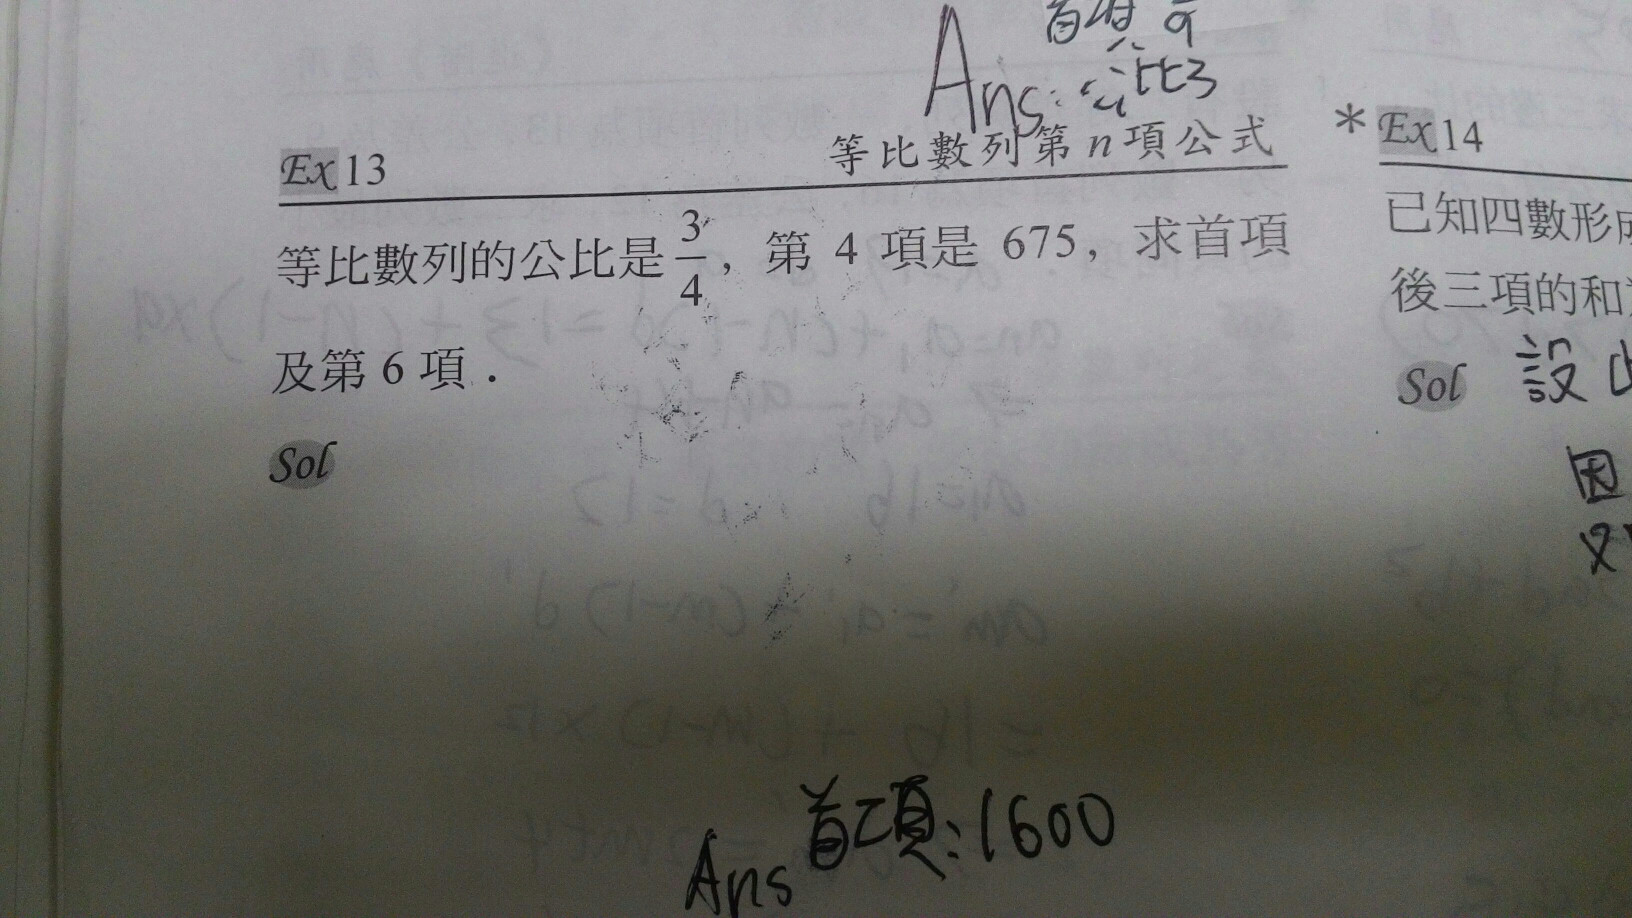 Ans: 公比3
Ex 13 等比數列第 n 項公式
等比數列的公比是 3/4, 第 4 項是 675, 求首項
及第 6 項.
Sol
Ans 首項: 1600
* Ex 14
已知四數形成
後三項的和
Sol 設
因
又